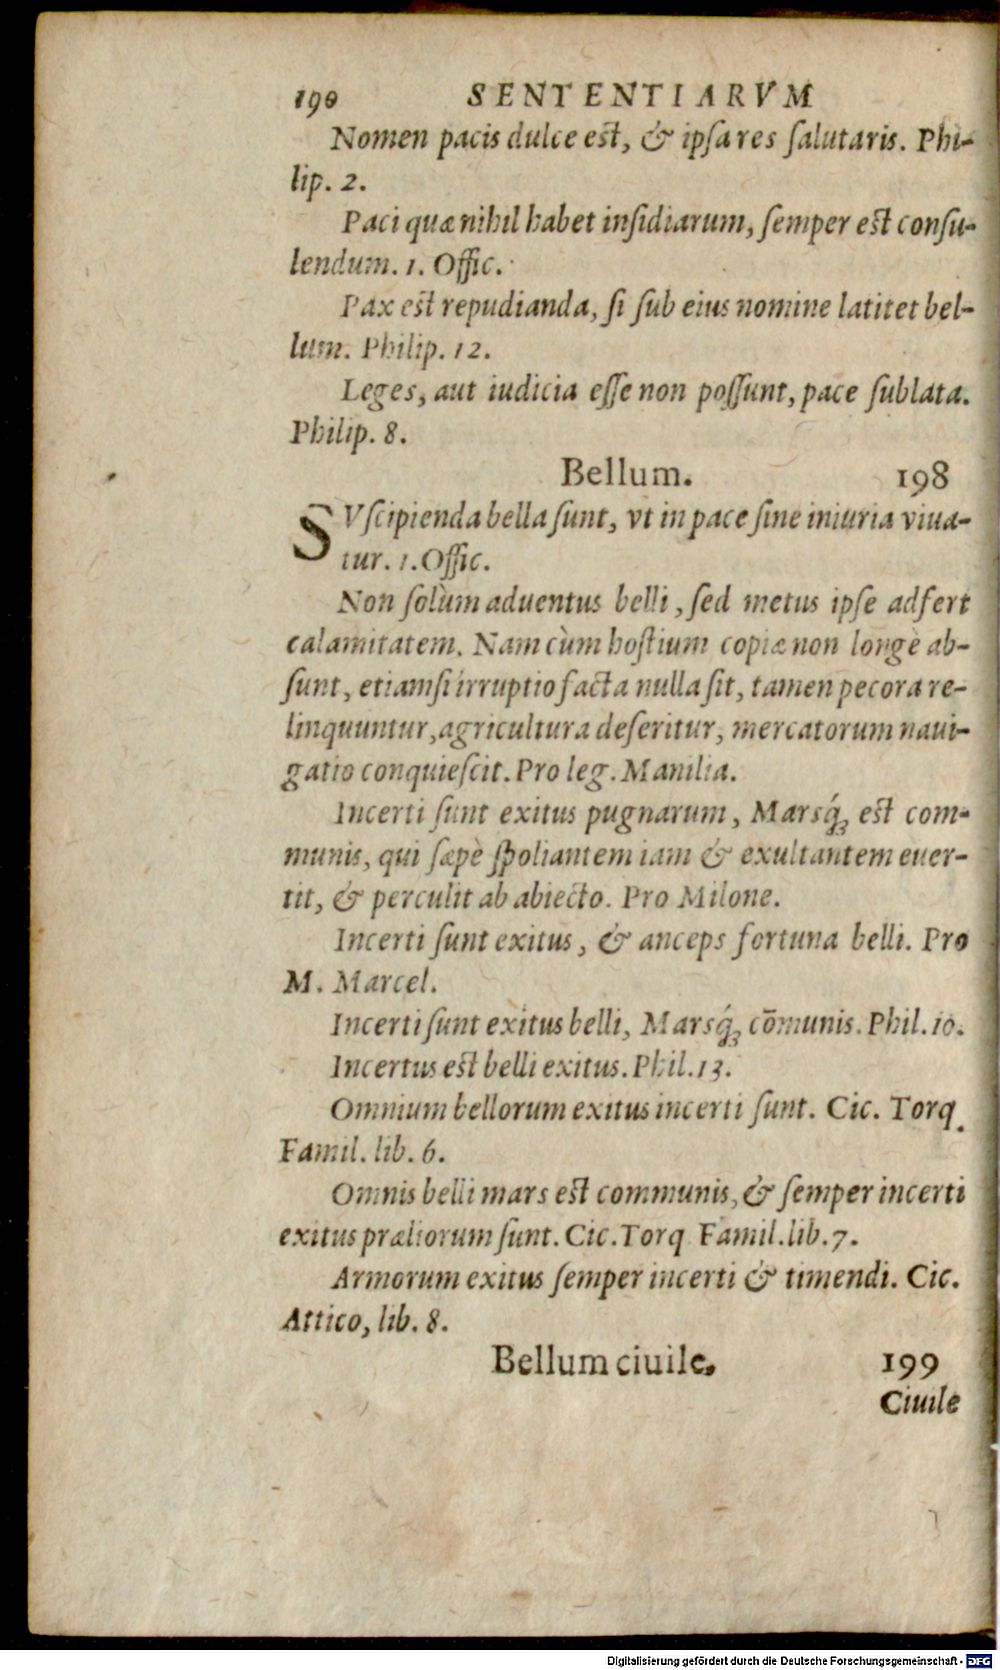 190 SENTENTIARVM
Nomen pacis dulce est, & ipsa res ſalutaris. Phi-
lip. 2.
Paci quæ nihil habet inſidiarum, ſemper est conſu-
lendum. 1. Offic.
Pax est repudianda, ſi ſub eius nomine latitet bel-
lum. Philip. 12.
Leges, aut iudicia eſſe non poſſunt, pace ſublata.
Philip. 8.
Bellum. 198
SVſcipienda bella ſunt, vt in pace ſine iniuria viua-
tur. 1. Offic.
Non ſolùm aduentus belli, ſed metus ipſe adfert
calamitatem. Nam cùm hoſtium copiæ non longè ab-
ſunt, etiamſi irruptio facta nulla ſit, tamen pecora re-
linquuntur, agricultura deſeritur, mercatorum naui-
gatio conquieſcit. Pro leg. Manilia.
Incerti ſunt exitus pugnarum, Marsq́ꝫ est com-
munis, qui ſæpè ſpoliantem iam & exultantem euer-
tit, & perculit ab abiecto. Pro Milone.
Incerti ſunt exitus, & anceps fortuna belli. Pro
M. Marcel.
Incerti ſunt exitus belli, Marsq́ꝫ cōmunis. Phil. 10.
Incertus est belli exitus. Phil. 13.
Omnium bellorum exitus incerti ſunt. Cic. Torq.
Famil. lib. 6.
Omnis belli mars est communis, & ſemper incerti
exitus præliorum ſunt. Cic. Torq Famil. lib. 7.
Armorum exitus ſemper incerti & timendi. Cic.
Attico, lib. 8.
Bellum ciuile. 199
Ciuile
Digitalisierung gefördert durch die Deutsche Forschungsgemeinschaft - DFG